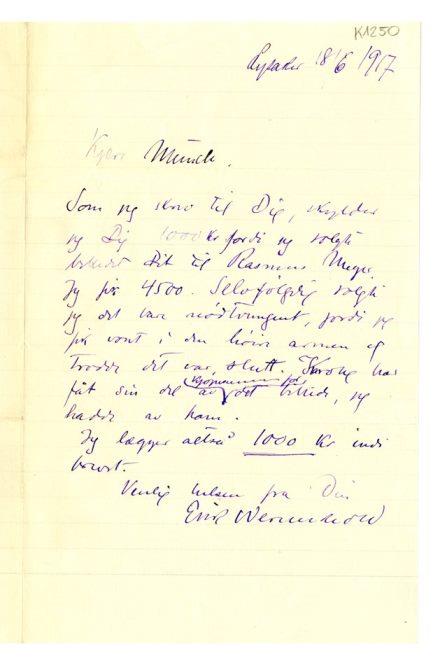 K1250
Lysaker 18/6 1917
Kjære Munch.
Som jeg skrev til Dig, skylder
jeg Dig 1000 kr fordi jeg solgte
billedet dit til Rasmus Meyer.
Jeg fik 4500. Selvfølgelig solgte
jeg det bare nødtvungent, fordi jeg
fik vont i den høire armen og
trodde det var slutt. Krohg har
kjøpesummen for
fåt sin del av det billede, jeg
hadde av ham.
Jeg lægger altså 1000 kr indi
brevet.
Venlig hilsen fra Din
Erik Werenskiold